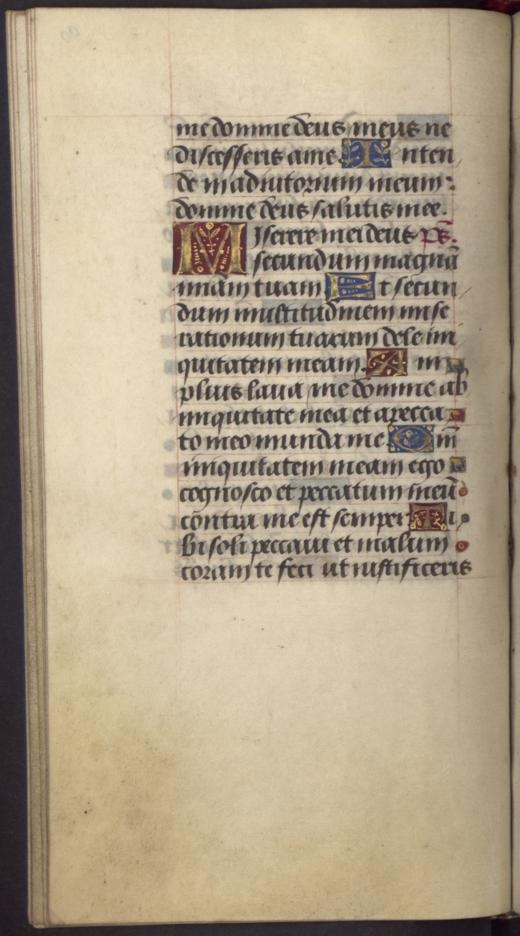 me domine deus meus ne
discesseris a me Inten
de in adiutorium meum:
domine deus salutis mee.
Miserere mei deus ps.
secundum magnā
miam̄ tuam Et secun
dum multitudinem mise
rationum tuarum dele ini
quitatem meam. Am
plius laua me domine ab
iniquitate mea et a pecca
to meo munda me Qm̄
iniquitatem meam ego
cognosco et peccatum meū
contra me est semper Ti
bi soli peccaui et malum
coram te feci ut iustificeris